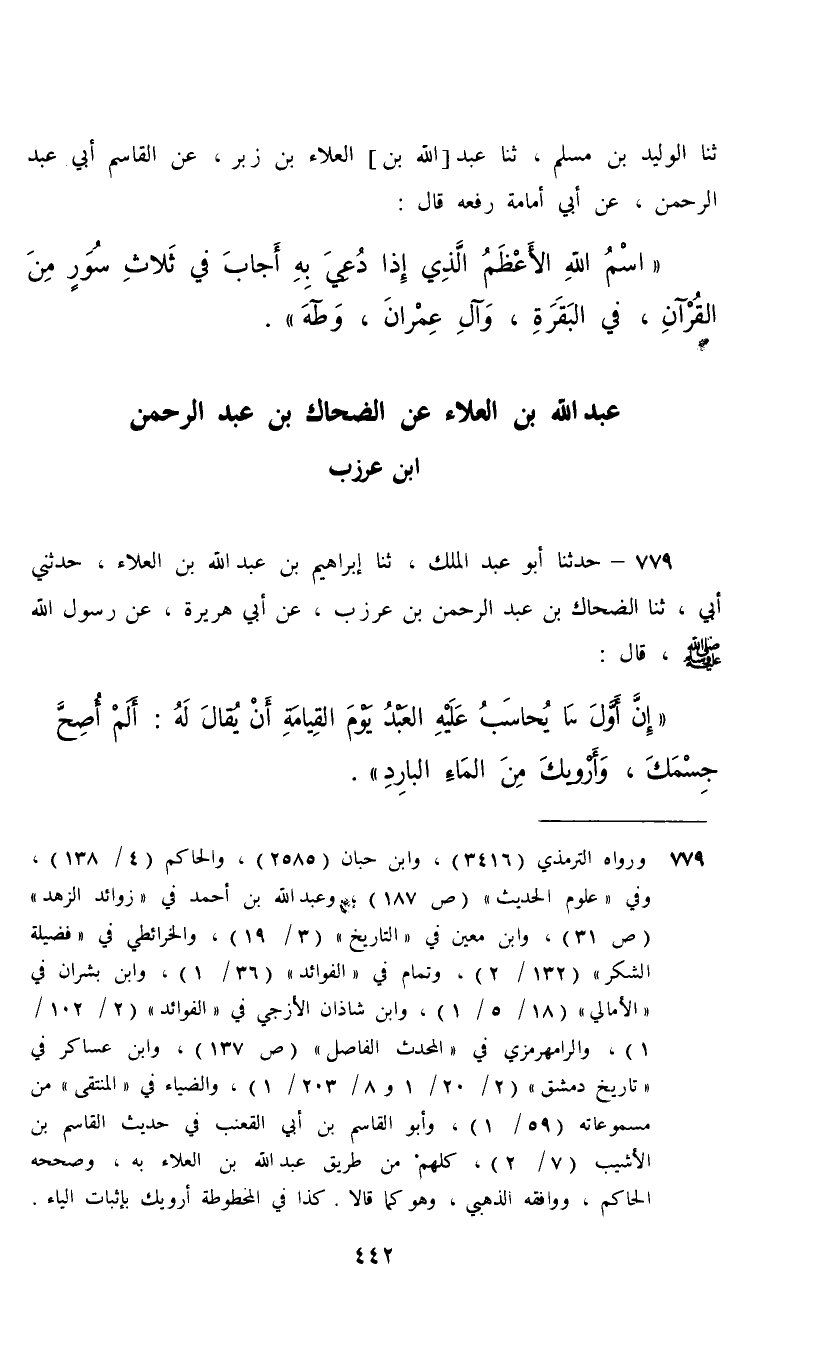 ثنا الوليد بن مسلم ، ثنا عبد [الله بن] العلاء بن زبر ، عن القاسم أبي عبد
الرحمن ، عن أبي أمامة رفعه قال :
« اسْمُ اللهِ الأَعْظَمُ الَّذِي إِذا دُعِيَ بِهِ أَجابَ في ثَلاثِ سُوَرٍ مِنَ
القُرْآنِ ، في البَقَرَةِ ، وَآلِ عِمْرانَ ، وَطٓهَ » .
عبد الله بن العلاء عن الضحاك بن عبد الرحمن
ابن عرزب
٧٧٩ – حدثنا أبو عبد الملك ، ثنا إبراهيم بن عبد الله بن العلاء ، حدثني
أبي ، ثنا الضحاك بن عبد الرحمن بن عرزب ، عن أبي هريرة ، عن رسول الله
ﷺ ، قال :
« إِنَّ أَوَّلَ مَا يُحاسَبُ عَلَيْهِ العَبْدُ يَوْمَ القِيامَةِ أَنْ يُقالَ لَهُ : أَلَمْ أُصِحَّ
جِسْمَكَ ، وَأَرْوِيكَ مِنَ المَاءِ البارِدِ » .
٧٧٩ ورواه الترمذي (٣٤١٦) ، وابن حبان (٢٥٨٥) ، والحاكم (٤/ ١٣٨) ،
وفي « علوم الحديث » (ص ١٨٧) ، وعبد الله بن أحمد في « زوائد الزهد »
(ص ٣١) ، وابن معين في « التاريخ » (٣/ ١٩) ، والخرائطي في « فضيلة
الشكر » (١٣٢/ ٢) ، وتمام في « الفوائد » (٣٦/ ١) ، وابن بشران في
« الأمالي » (١٨/ ٥/ ١) ، وابن شاذان الأزجي في « الفوائد » (٢/ ١٠٢/
١) ، والرامهرمزي في « المحدث الفاصل » (ص ١٣٧) ، وابن عساكر في
« تاريخ دمشق » (٢/ ٢٠/ ١ و ٨/ ٢٠٣/ ١) ، والضياء في « المنتقى » من
مسموعاته (٥٩/ ١) ، وأبو القاسم بن أبي القعنب في حديث القاسم بن
الأشيب (٧/ ٢) ، كلهم من طريق عبد الله بن العلاء به ، وصححه
الحاكم ، ووافقه الذهبي ، وهو كما قالا . كذا في المخطوطة أرويك بإثبات الياء .
٤٤٢